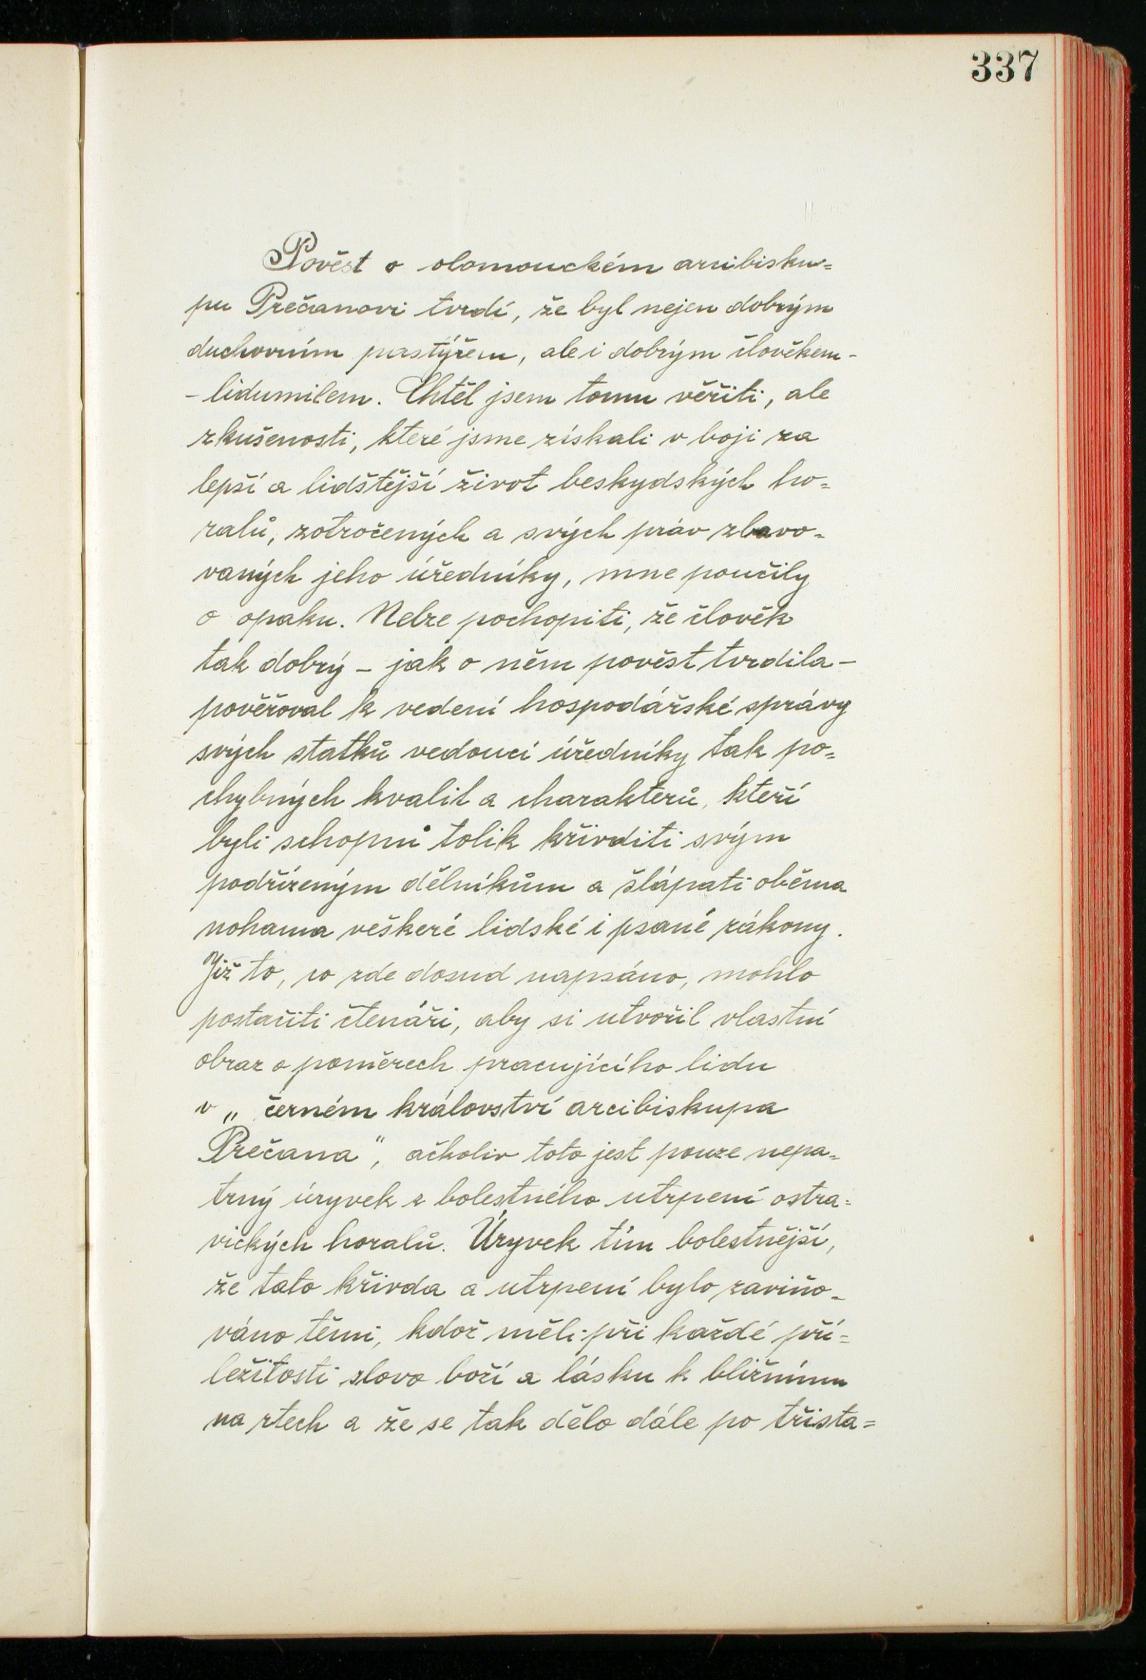 337
Pověst o olomouckém arcibisku=
pu Prečanovi tvrdí, že byl nejen dobrým
duchovním pastýřem, ale i dobrým člověkem-
-lidumilem. Chtěl jsem tomu věřiti, ale
zkušenosti, které jsme získali v boji za
lepší a lidštější život beskydských ho=
ralů, zotročených a svých práv zbavo-
vaných jeho úředníky, mne poučily
o opaku. Nelze pochopiti, že člověk
tak dobrý – jak o něm pověst tvrdila –
pověřoval k vedení hospodářské správy
svých statků vedoucí úředníky tak po=
chybných kvalit a charakterů, kteří
byli schopni tolik křivditi svým
podřízeným dělníkům a šlápati oběma
nohama veškeré lidské i psané zákony.
Již to, co zde dosud napsáno, mohlo
postačiti čtenáři, aby si utvořil vlastní
obraz o poměrech pracujícího lidu
v „černém království arcibiskupa
Prečana", ačkoliv toto jest pouze nepa-
trný úryvek z bolestného utrpení ostra=
vických horalů. Úryvek tím bolestnější,
že tato křivda a utrpení bylo zaviňo-
váno těmi, kdož měli při každé pří=
ležitosti slovo boží a lásku k bližnímu
na rtech a že se tak dělo dále po třista=